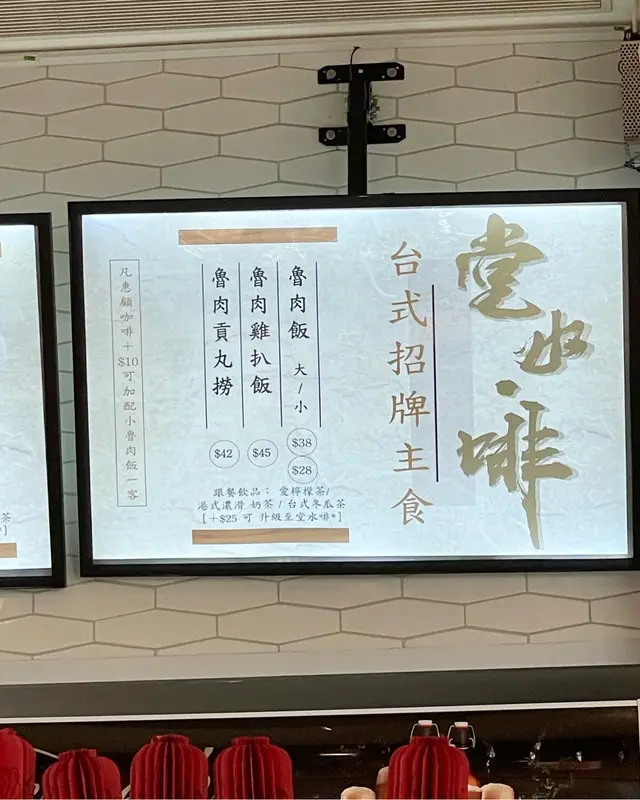 堂水·啡
台式招牌主食
魯肉飯 大/小
$38
$28
魯肉雞扒飯
$45
魯肉貢丸撈
$42
跟餐飲品： 愛檸檬茶/
港式濃滑 奶茶 / 台式冬瓜茶
[ +$25 可 升級至堂水啡*]
凡惠顧咖啡+$10可加配小魯肉飯一客
茶
*]